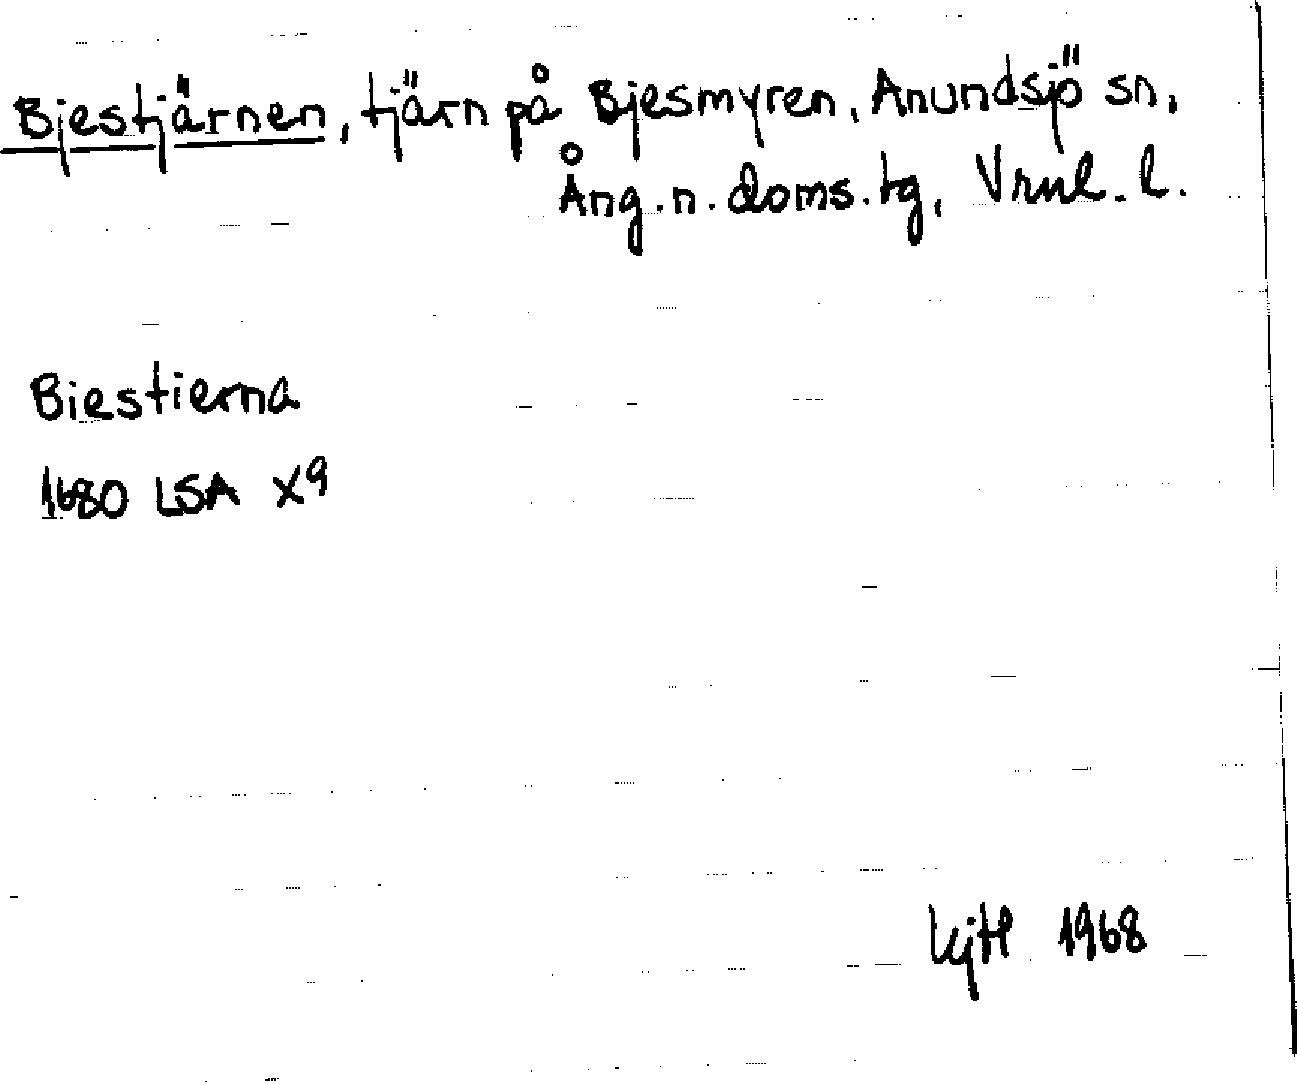 Bjestjärnen, tjärn på Bjesmyren, Anundsjö sn,
Ång.n.doms.tg, Vrnl. l.
Biestierna
1680 LSA X9
1968